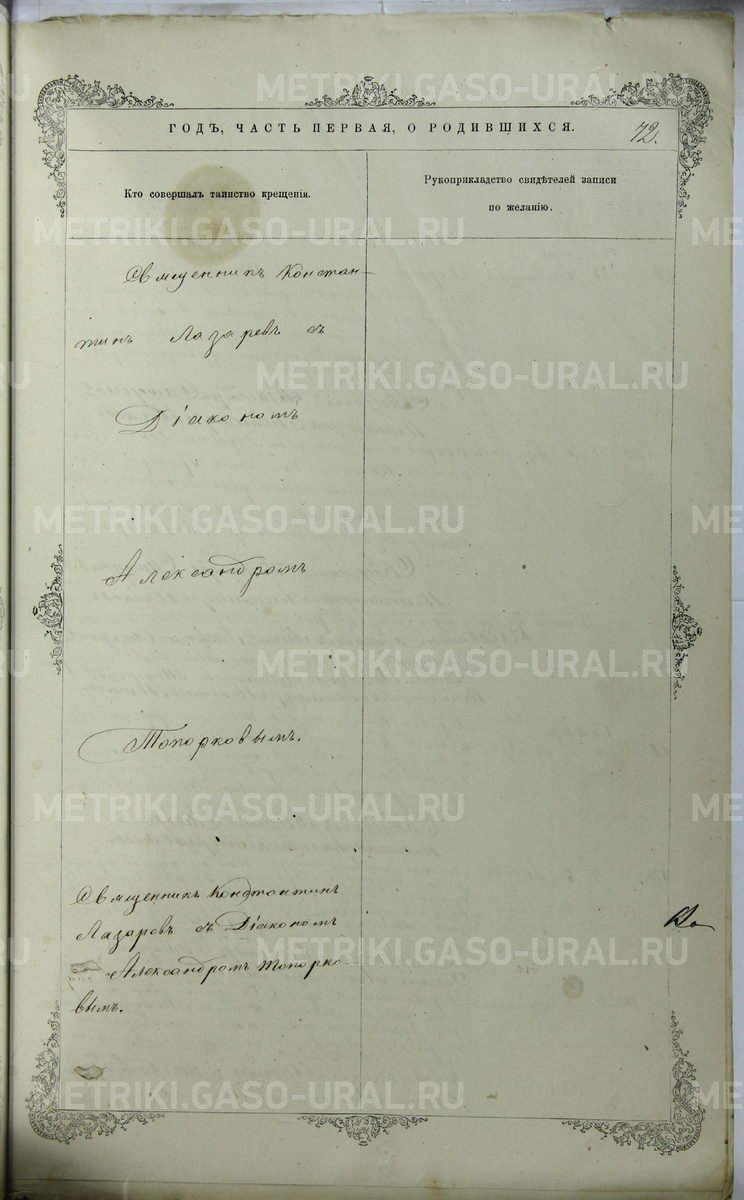 ГОДЪ, ЧАСТЬ ПЕРВАЯ, О РОДИВШИХСЯ.
72.
Кто совершалъ таинство крещенія.
Рукоприкладство свидѣтелей записи
по желанію.
Священникъ Констан-
тинъ Лазаревъ съ
Діакономъ
Александромъ
Топорковымъ.
Священникъ Константинъ
Лазаревъ съ Діакономъ
Александромъ Топорко-
вымъ.
METRIKI.GASO-URAL.RU